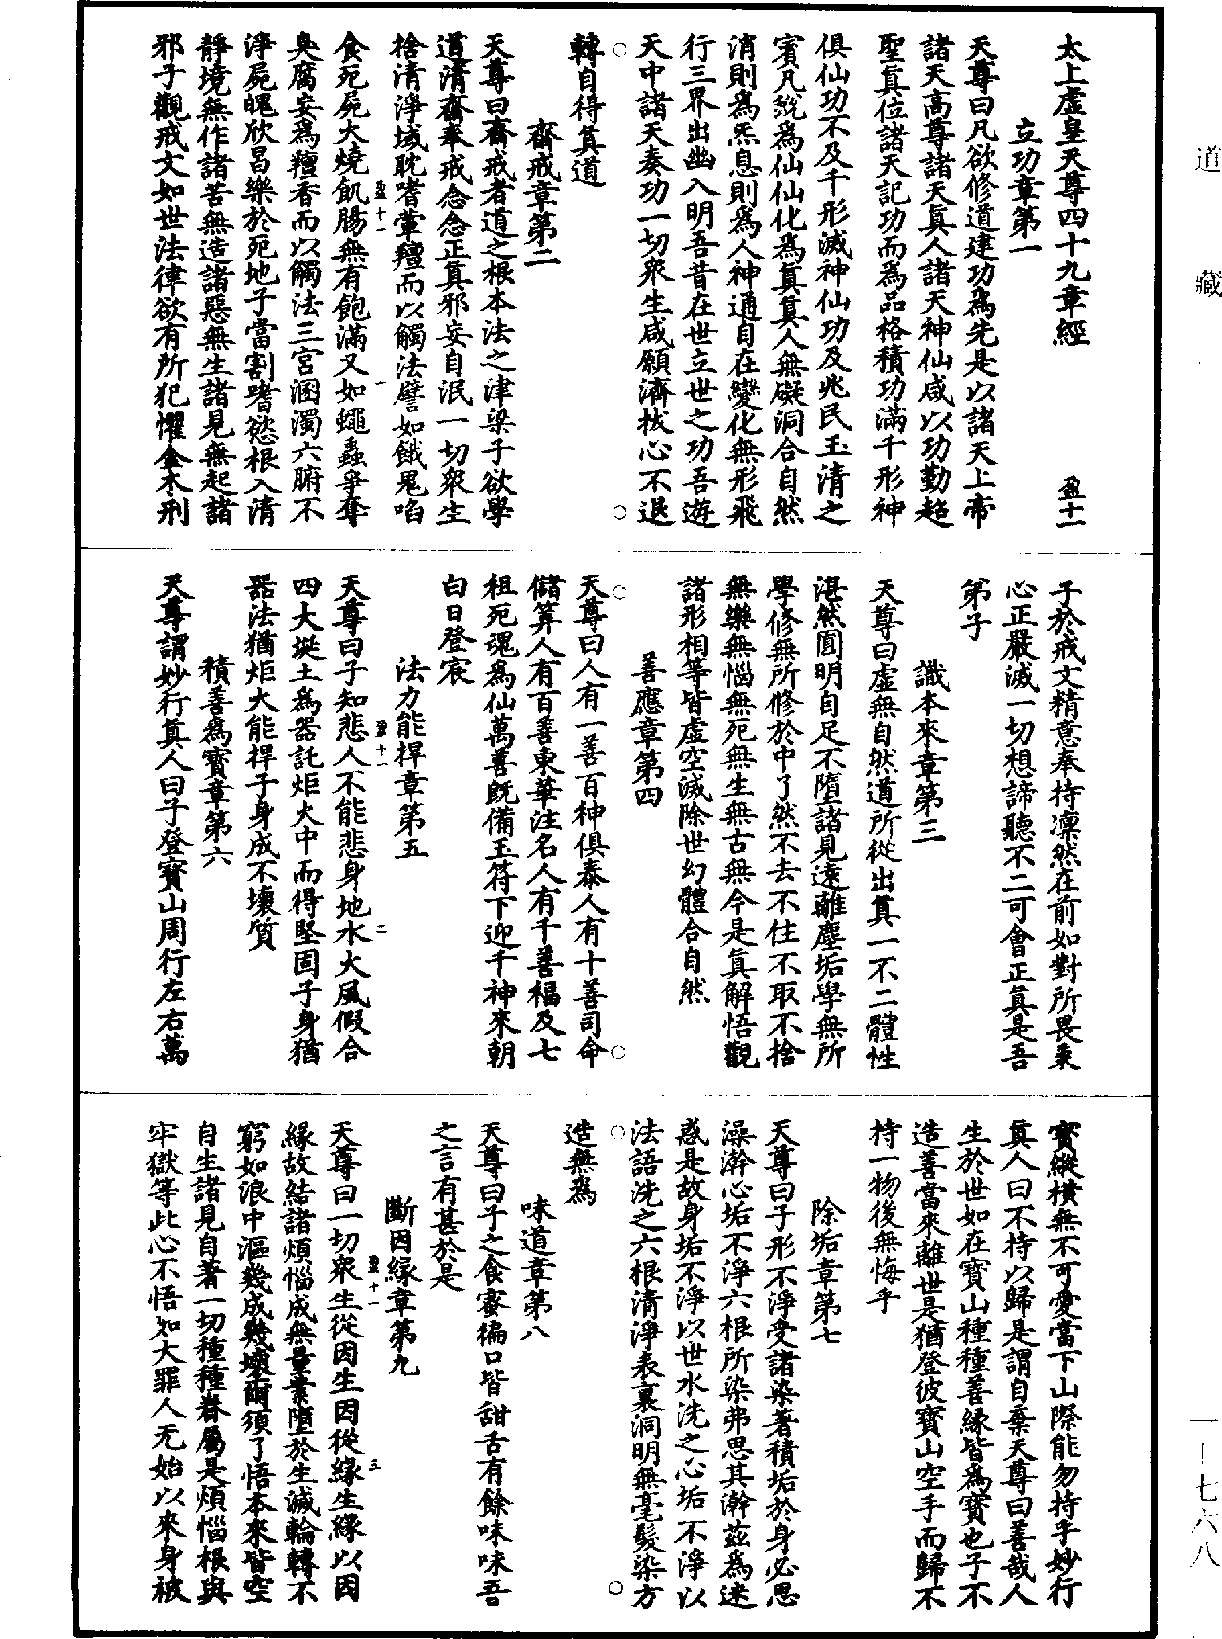 道藏
太上虛皇天尊四十九章經 盈十一
立功章第一
天尊曰凡欲修道建功為先是以諸天上帝
諸天高尊諸天真人諸天神仙咸以功勤超
聖真位諸天記功而為品格積功滿千形神
俱仙功不及千形滅神仙功及兆民玉清之
賓凡蛻為仙仙化為真真人無礙洞合自然
消則為炁息則為人神通自在變化無形飛
行三界出幽入明吾昔在世立世之功吾遊
天中諸天奏功一切眾生咸願濟拔心不退
轉自得真道
齋戒章第二
天尊曰齋戒者道之根本法之津梁子欲學
道清齋奉戒念念正真邪妄自泯一切眾生
捨清淨域耽嗜葷羶而以觸法譬如餓鬼啗
食死屍火燒飢腸無有飽滿又如蠅蟲爭奪
盈十一 一
臭腐妄為羶香而以觸法三宮溷濁六腑不
淨屍魄欣昌樂於死地子當割嗜慾根入清
靜境無作諸苦無造諸惡無生諸見無起諸
邪子觀戒文如世法律欲有所犯懼金木刑
子於戒文精意奉持凛然在前如對所畏秉
心正嚴滅一切想諦聽不二可會正真是吾
弟子
識本來章第三
天尊曰虛無自然道所從出真一不二體性
湛然圓明自足不墮諸見遠離塵垢學無所
學修無所修於中了然不去不住不取不捨
無樂無惱無死無生無古無今是真解悟觀
諸形相等皆虛空滅除世幻體合自然
善應章第四
天尊曰人有一善百神俱泰人有十善司命
儲算人有百善東華注名人有千善福及七
祖死魂為仙萬善既備玉符下迎千神來朝
白日登宸
法力能捍章第五
盈十一 二
天尊曰子知悲人不能悲身地水火風假合
四大埏土為器託炬火中而得堅固子身猶
器法猶炬火能捍子身成不壞質
積善為寶章第六
天尊謂妙行真人曰子登寶山周行左右萬
寶縱橫無不可愛當下山際能勿持乎妙行
真人曰不持以歸是謂自棄天尊曰善哉人
生於世如在寶山種種善緣皆為寶也子不
造善當來離世是猶登彼寶山空手而歸不
持一物後無悔乎
除垢章第七
天尊曰子形不淨受諸染著積垢於身必思
澡澣心垢不淨六根所染弗思其澣茲為迷
惑是故身垢不淨以世水洗之心垢不淨以
法語洗之六根清淨表裏洞明無毫髮染方
造無為
味道章第八
天尊曰子之食蜜徧口皆甜舌有餘味味吾
之言有甚於是
斷因緣章第九
盈十一 三
天尊曰一切眾生從因生因從緣生緣以因
緣故結諸煩惱成無量業墮於生滅輪轉不
窮如浪中漚幾成幾壞爾須了悟本來皆空
自生諸見自著一切種種眷屬是煩惱根與
牢獄等此心不悟知大罪人无始以來身被
一—七六八